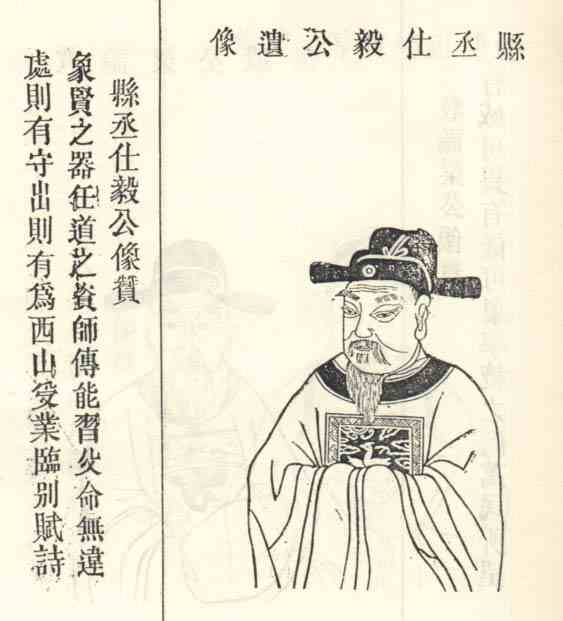 縣丞仕毅公遺像
縣丞仕毅公像贊
象賢之器任道之資師傳能習父命無違
處則有守出則有爲西山受業臨別賦詩